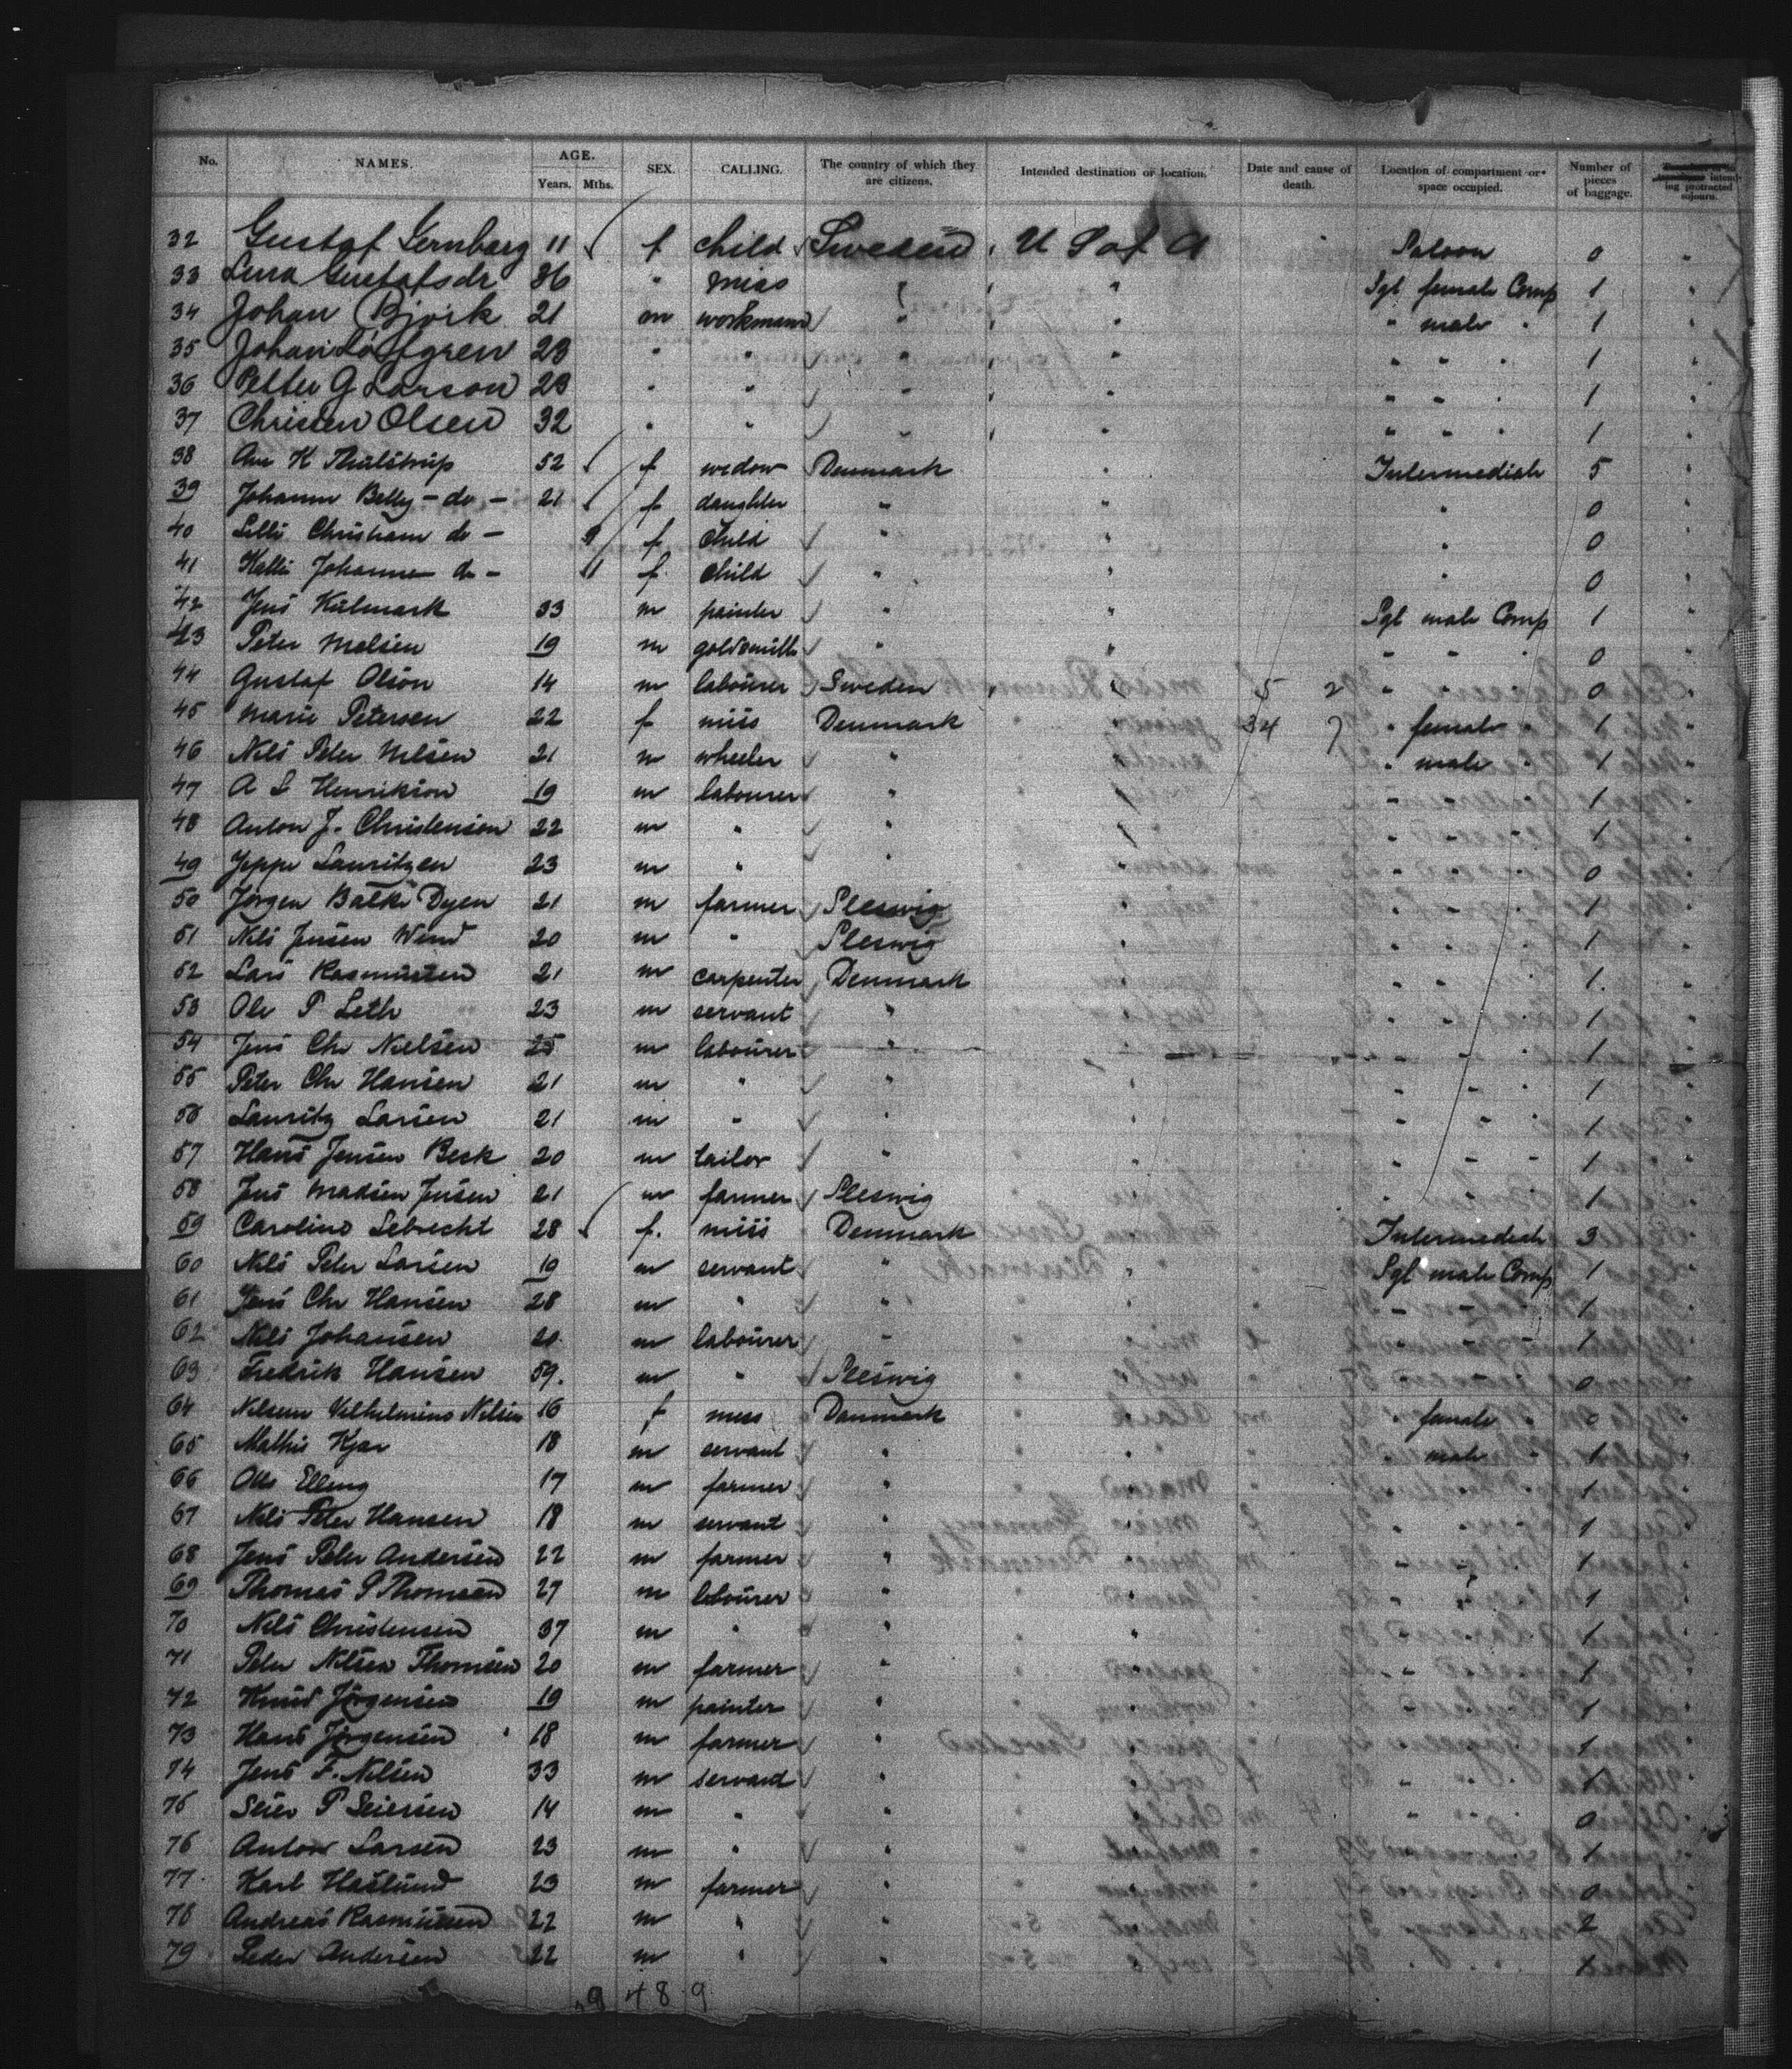 No. NAMES. AGE. Years. Mths. SEX. CALLING. The country of which they are citizens. Intended destination or location. Date and cause of death. Location of compartment or space occupied. Number of pieces of baggage. intending protracted sojourn.
32 Gustaf 11 f child Sweden U S of A Saloon 0 "
33 Lena Gustafsdr 36 " miss " " Sgl female Comp 1 "
34 Johan Bjork 21 m workman " " " male " 1 "
35 Johan Löfgren 23 " " " " " " " 1 "
36 Petter G Larson 23 " " " " " " " 1 "
37 Christen Olsen 32 " " " " " " " 1 "
38 Ane K Thulstrup 52 f widow Denmark " Intermediate 5 "
39 Johanne Betty - do - 21 f daughter " " " 0 "
40 Lilli Christiane do - 9 f child " " " 0 "
41 Johanne do - 11 f child " " " 0 "
42 Jens Kulmark 33 m painter " " Sgl male Comp 1 "
43 Peter Melsen 19 m goldsmith " " " " " 0 "
44 Gustaf Olson 14 m labourer Sweden " 5 2 " " " 0 "
45 Marie Petersen 22 f miss Denmark 34 7 " female " 1 "
46 Nils Peter Nilsen 21 m wheeler " " " male " 1 "
47 A S Henrikson 19 m labourer " " " " " 1 "
48 Anton J. Christensen 22 m " " " " " " 1 "
49 Jeppe Lauritzen 23 m " " " " " " 0 "
50 Jorgen Balke Dyen 21 m farmer Sleswig " " " " 1 "
51 Nils Jensen Wind 20 m " Sleswig " " " " 1 "
52 Lars Rasmussen 21 m carpenter Denmark " " " " 1. "
53 Ole P Leth 23 m servant " " " " " 1 "
54 Jens Chr Nielsen 25 m labourer " " " " " 1 "
55 Peter Chr Hansen 21 m " " " " " " 1 "
56 Lauritz Larsen 21 m " " " " " " 1 "
57 Hans Jensen Beck 20 m tailor " " " " " 1 "
58 Jens Madsen Jensen 21 m farmer Sleswig " " " " 1 "
59 Caroline Lebrecht 28 f. miss Denmark " Intermediate 3 "
60 Nils Peter Larsen 19 m servant " " Sgl male Comp 1 "
61 Jens Chr Hansen 28 m " " " " " " 1 "
62 Nils Johansen 21 m labourer " " " " " 1 "
63 Fredrik Hansen 59. m " Sleswig " " " " 0 "
64 Vilhelmine Nilsen 16 f miss Danmark " " female " 0 "
65 Mathis Kjar 18 m servant " " " male " 1 "
66 Otto Elling 17 m farmer " " " " " 1 "
67 Nils Peter Hansen 18 m servant " " " " " 1 "
68 Jens Peter Andersen 22 m farmer " " " " " 1 "
69 Thomas P Thomsen 27 m labourer " " " " " 1 "
70 Nils Christensen 37 m " " " " " " 1 "
71 Peter Nilsen Thomsen 20 m farmer " " " " " 1 "
72 Knud Jörgensen 19 m painter " " " " " 1 "
73 Hans Jörgensen 18 m farmer " " " " " 1 "
74 Jens F. Nilsen 33 m servant " " " " " 1 "
75 Seier P Seiersen 14 m " " " " " " 0 "
76 Anton Larsen 23 m " " " " " " 1 "
77. Karl Haslund 23 m farmer " " " " " 0 "
78 Andreas Rasmussen 22 m " " " " " " 2 "
79 Peder Andersen 22 m " " " " " " 1 "
9 48 9